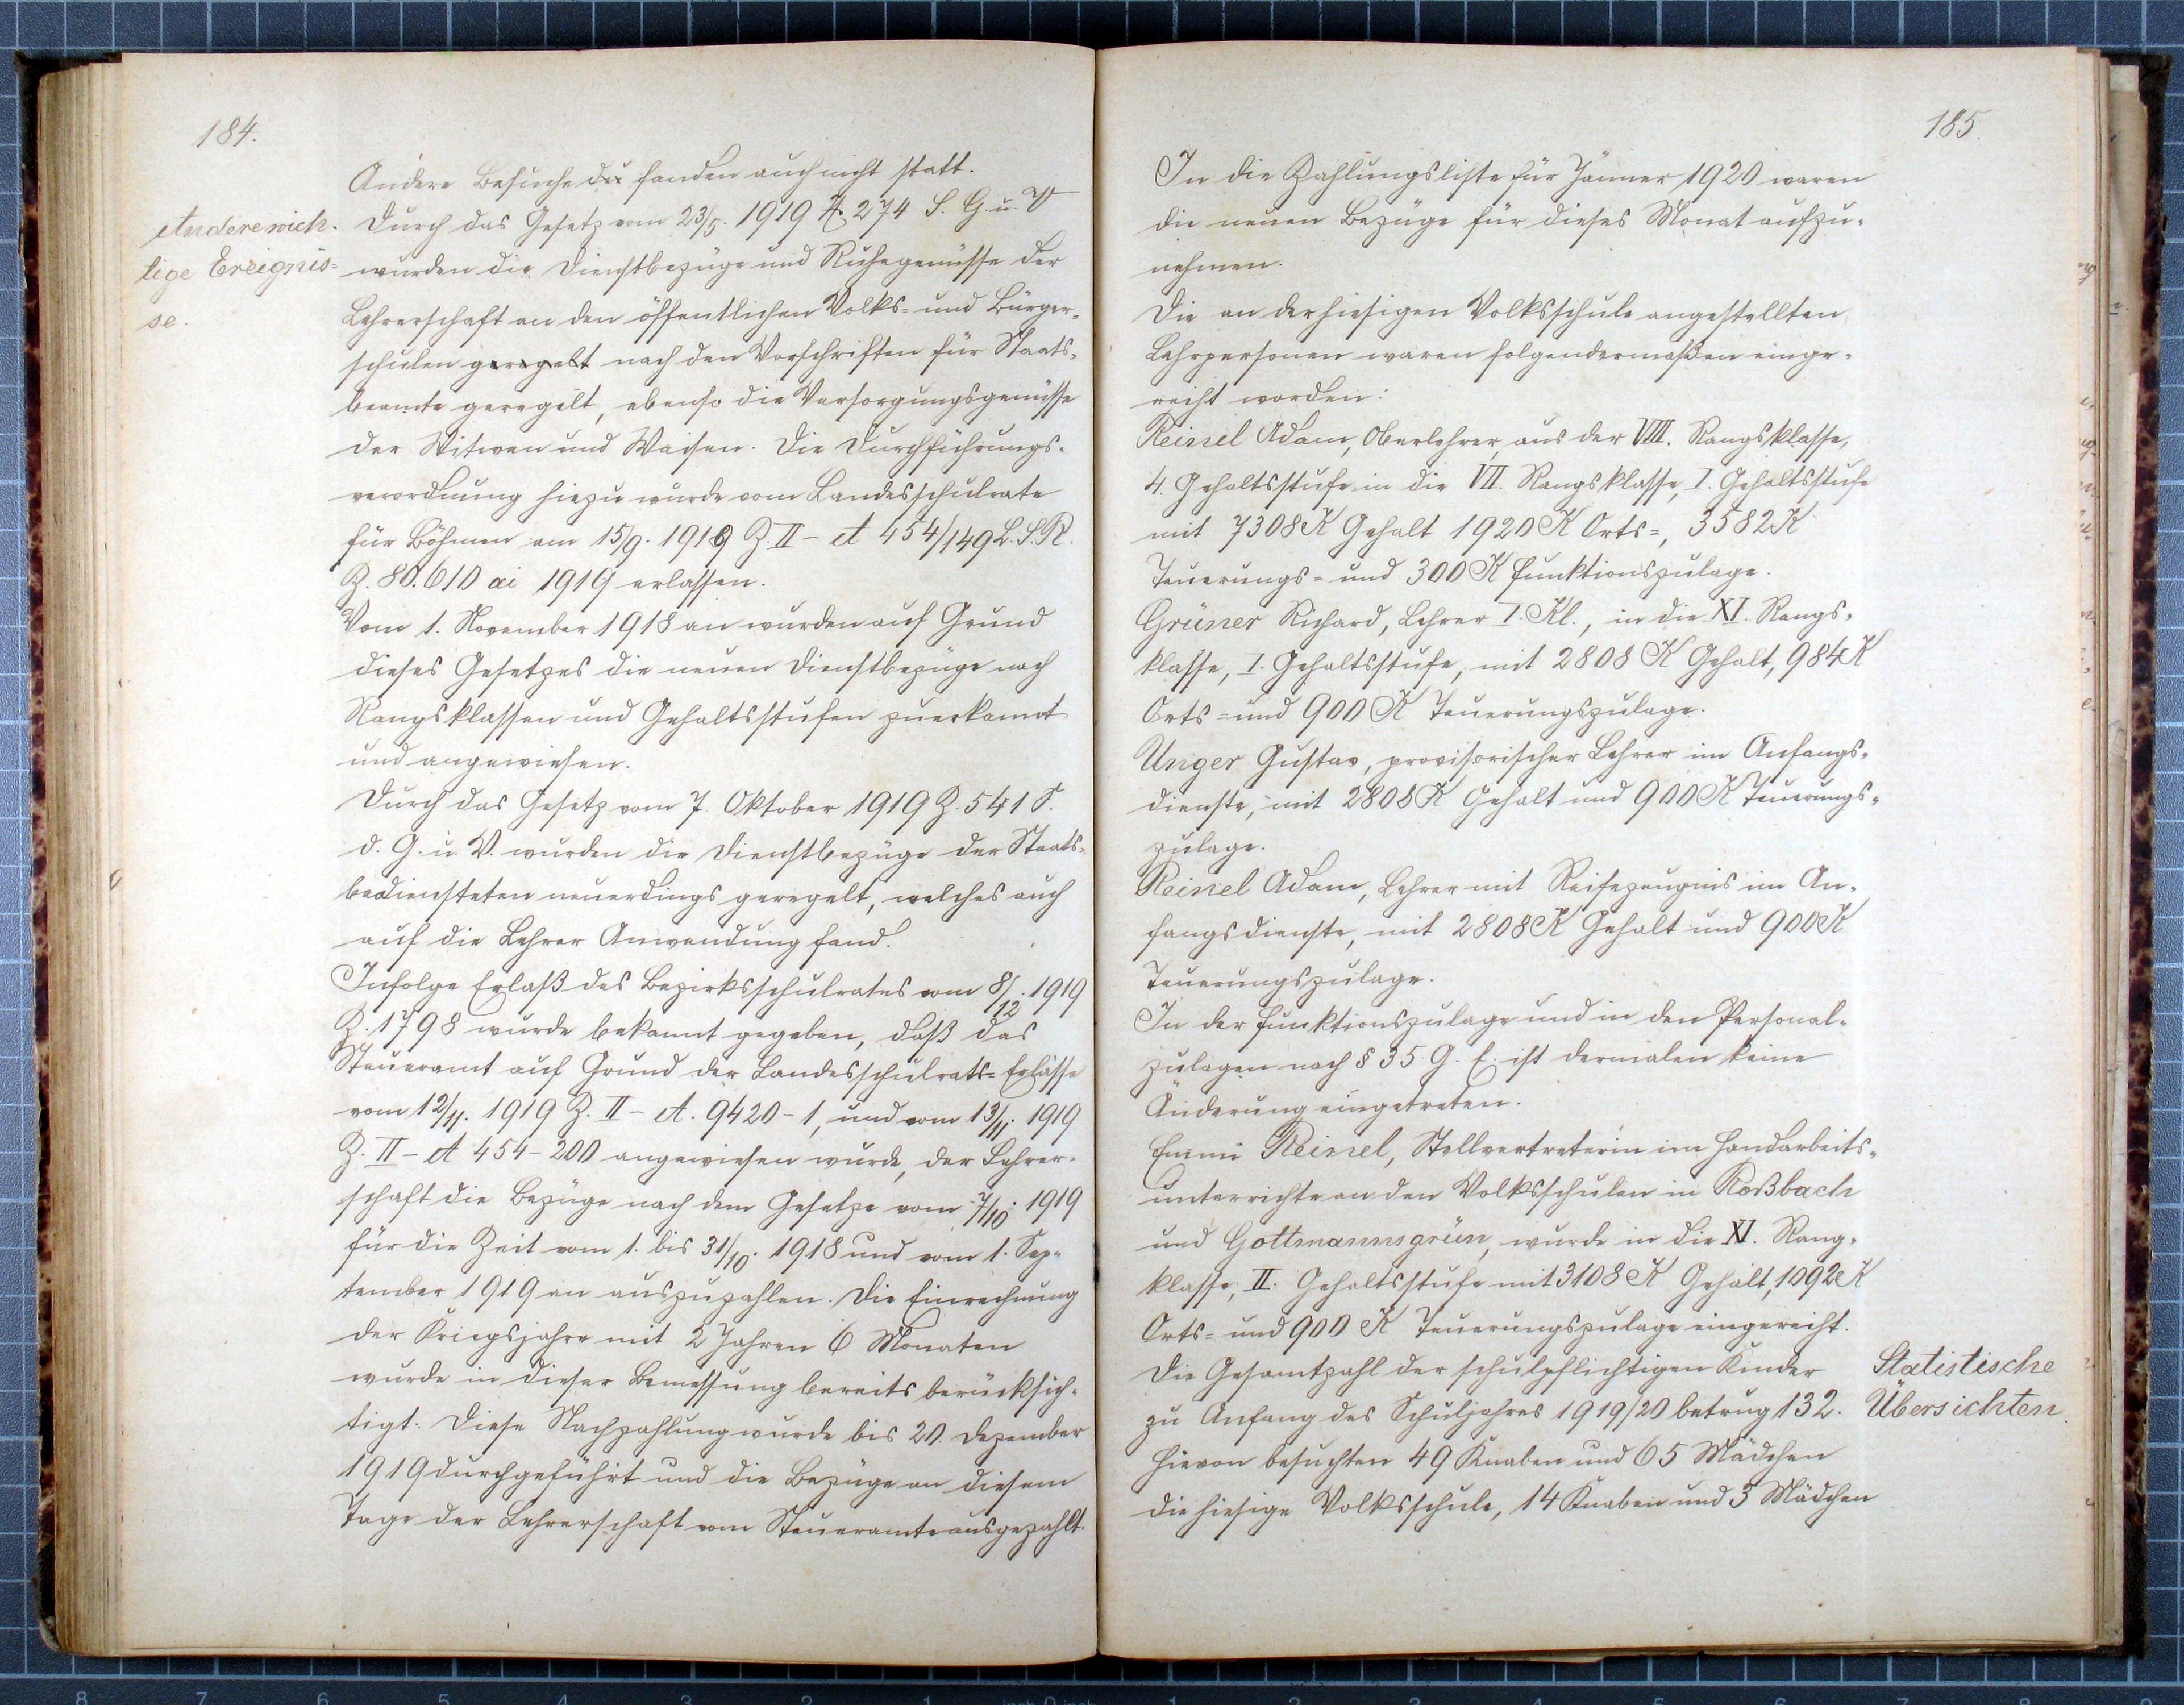 184.
Andere Besuche fanden auch nicht statt.
Andere wich-
tige Ereignis-
se.
Durch das Gesetz vom 23/5. 1919 Z. 274 S. G. u. V
wurden die Dienstbezüge und Ruhegenüsse der
Lehrerschaft an den öffentlichen Volks- und Bürger-
schulen geregelt nach den Vorschriften für Staats-
beamte geregelt, ebenso die Versorgungsgenüsse
der Witwen und Waisen. Die Durchführungs-
verordnung hiezu wurde vom Landesschulrate
für Böhmen am 15/9. 1919 Z. II - A 454/149 L.S.R.
Z. 80.610 ai 1919 erlassen.
Vom 1. November 1918 an wurden auf Grund
dieses Gesetzes die neuen Dienstbezüge nach
Rangsklassen und Gehaltsstufen zuerkannt
und angewiesen.
Durch das Gesetz vom 7. Oktober 1919 Z. 541 S.
d. G. u. V. wurden die Dienstbezüge der Staats-
bediensteten neuerdings geregelt, welches auch
auf die Lehrer Anwendung fand.
Infolge Erlaß des Bezirksschulrates vom 8/12. 1919
Z. 1798 wurde bekannt gegeben, daß das
Steueramt auf Grund der Landesschulrats-Erlässe
vom 12/11. 1919 Z. II - A. 9420 - 1, und vom 13/11. 1919
Z. II - A 454 - 200 angewiesen wurde, der Lehrer-
schaft die Bezüge nach dem Gesetze vom 7/10. 1919
für die Zeit vom 1. bis 31/10. 1918 und vom 1. Sep-
tember 1919 an auszuzahlen. Die Einrechnung
der Kriegsjahre mit 2 Jahren 6 Monaten
wurde in dieser Bemessung bereits berücksich-
tigt. Diese Nachzahlung wurde bis 20. Dezember
1919 durchgeführt und die Bezüge an diesem
Tage der Lehrerschaft vom Steueramte ausgezahlt.
185.
In die Zahlungsliste für Jänner 1920 waren
die neuen Bezüge für dieses Monat aufzu-
nehmen.
Die an der hiesigen Volksschule angestellten
Lehrpersonen waren folgendermaßen einge-
reiht worden:
Reinel Adam, Oberlehrer, aus der VIII. Rangsklasse,
4. Gehaltsstufe in die VII. Rangsklasse, I. Gehaltsstufe
mit 7308 K Gehalt 1920 K Orts-, 3582 K
Teuerungs- und 300 K Funktionszulage.
Grüner Richard, Lehrer I. Kl., in die XI. Rangs-
klasse, I. Gehaltsstufe, mit 2808 K Gehalt, 984 K
Orts- und 900 K Teuerungszulage.
Unger Gustav, provisorischer Lehrer im Anfangs-
dienste, mit 2808 K Gehalt und 900 K Teuerungs-
zulage.
Reinel Adam, Lehrer mit Reifezeugnis im An-
fangsdienste, mit 2808 K Gehalt und 900 K
Teuerungszulage.
In der Funktionszulage und in den Personal-
zulagen nach § 35 G. E. ist dermalen keine
Änderung eingetreten.
Emmi Reinel, Stellvertreterin im Handarbeits-
unterrichte an den Volksschulen in Roßbach
und Gottmannsgrün, wurde in die XI. Rang-
klasse, II. Gehaltsstufe mit 3108 K Gehalt, 1092 K
Orts- und 900 K Teuerungszulage eingereiht.
Statistische
Übersichten.
Die Gesamtzahl der schulpflichtigen Kinder
zu Anfang des Schuljahres 1919/20 betrug 132.
Hievon besuchten 49 Knaben und 65 Mädchen
die hiesige Volksschule, 14 Knaben und 3 Mädchen
8 7 6 5 4 3 2 1 inch 0 inch 1 2 3 4 5 6 7 8 9